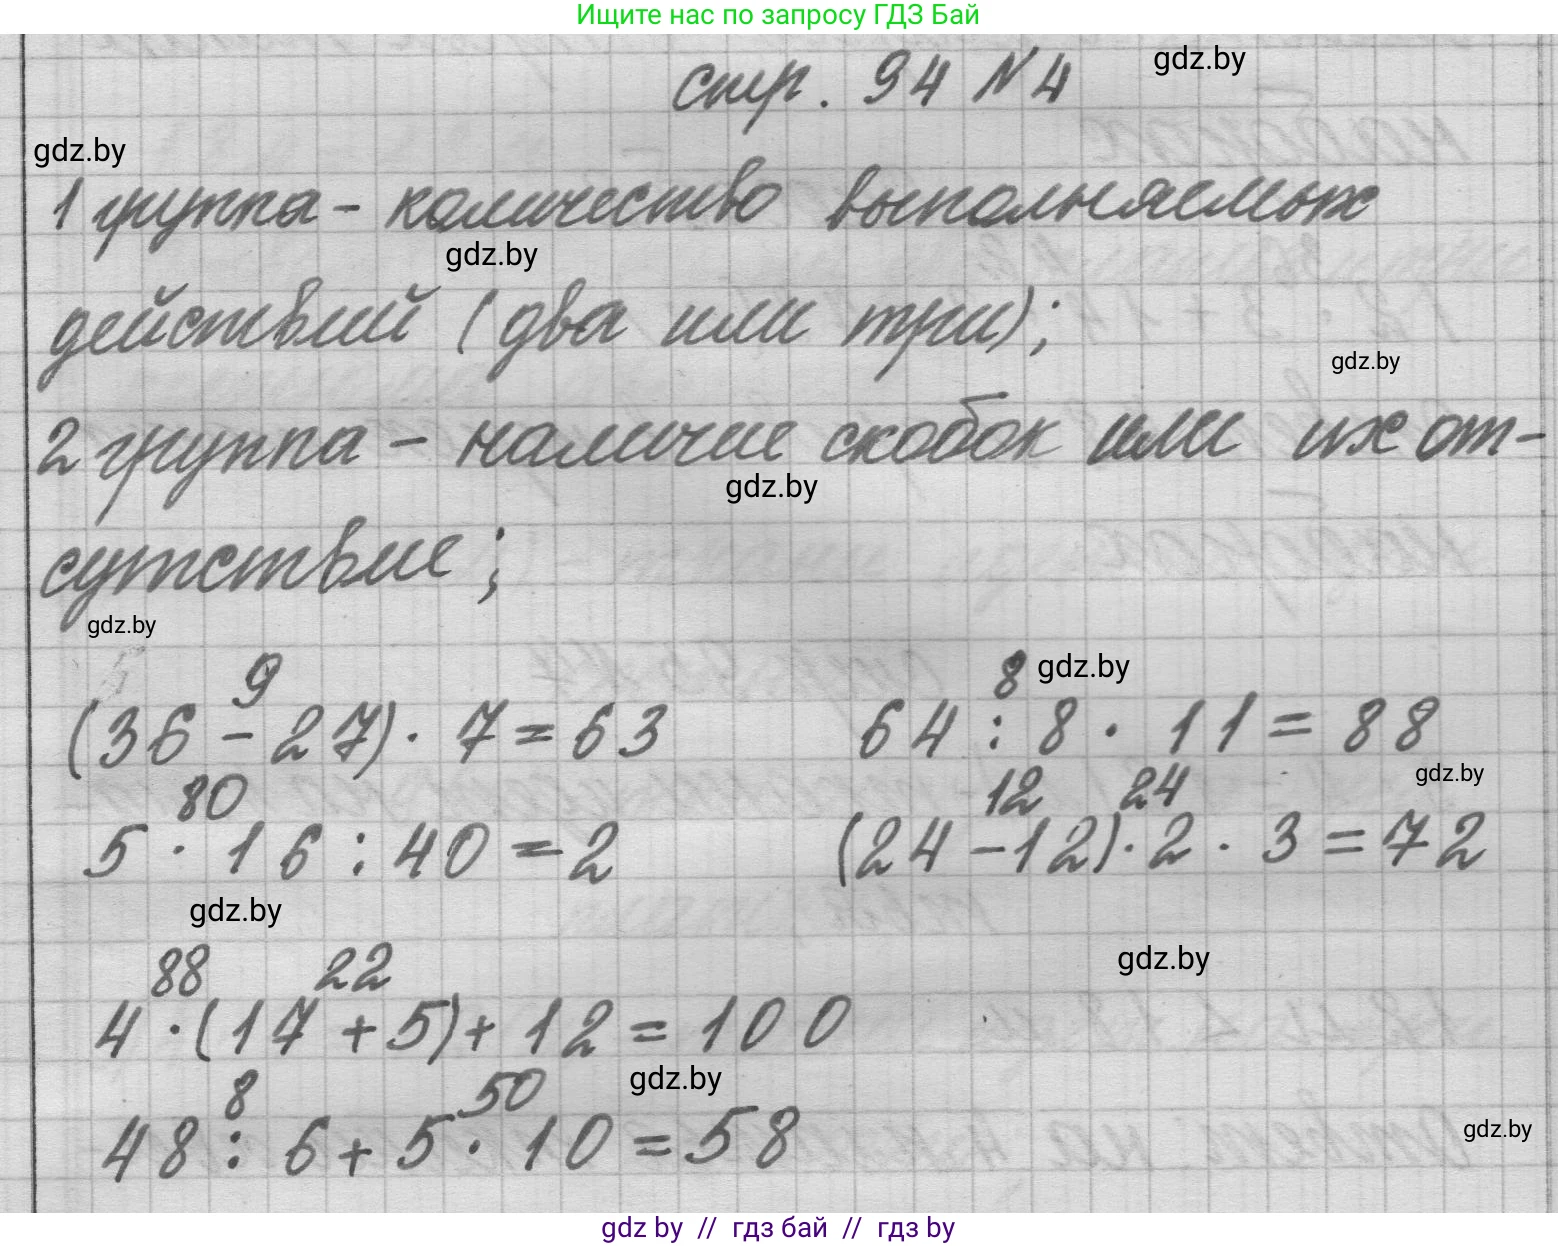 Ищите нас по запросу ГДЗ Бай
стр. 94 №4
gdz.by
gdz.by
1 группа - количество выполняемых
gdz.by
действий (два или три);
gdz.by
2 группа - наличие скобок или их от-
gdz.by
сутствие;
gdz.by
9
8
gdz.by
(36 - 27) · 7 = 63
64 : 8 · 11 = 88
gdz.by
80
12 24
5 · 16 : 40 = 2
(24 - 12) · 2 · 3 = 72
gdz.by
gdz.by
88 22
4 · (17 + 5) + 12 = 100
gdz.by
8 50
48 : 6 + 5 · 10 = 58
gdz.by
gdz by // гдз бай // гдз by